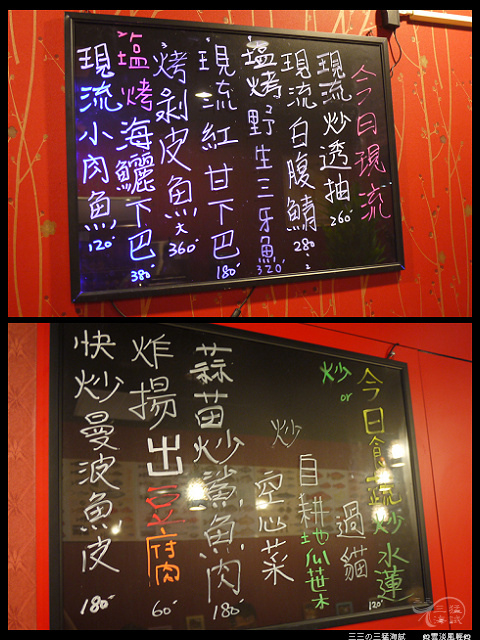 今日現流
現流炒透抽 260
現流白腹鯖 280
塩烤野生三牙魚 320
現流紅甘下巴 180
烤剝皮魚大 360
塩烤海鱺下巴 380
現流小肉魚 120
今日食蔬炒水蓮 120
炒 or 過貓
自耕地瓜葉
炒空心菜
蒜苗炒鯊魚肉 180
炸揚出豆腐 60
快炒曼波魚皮 180
三三の三猛海試
雲淡風輕